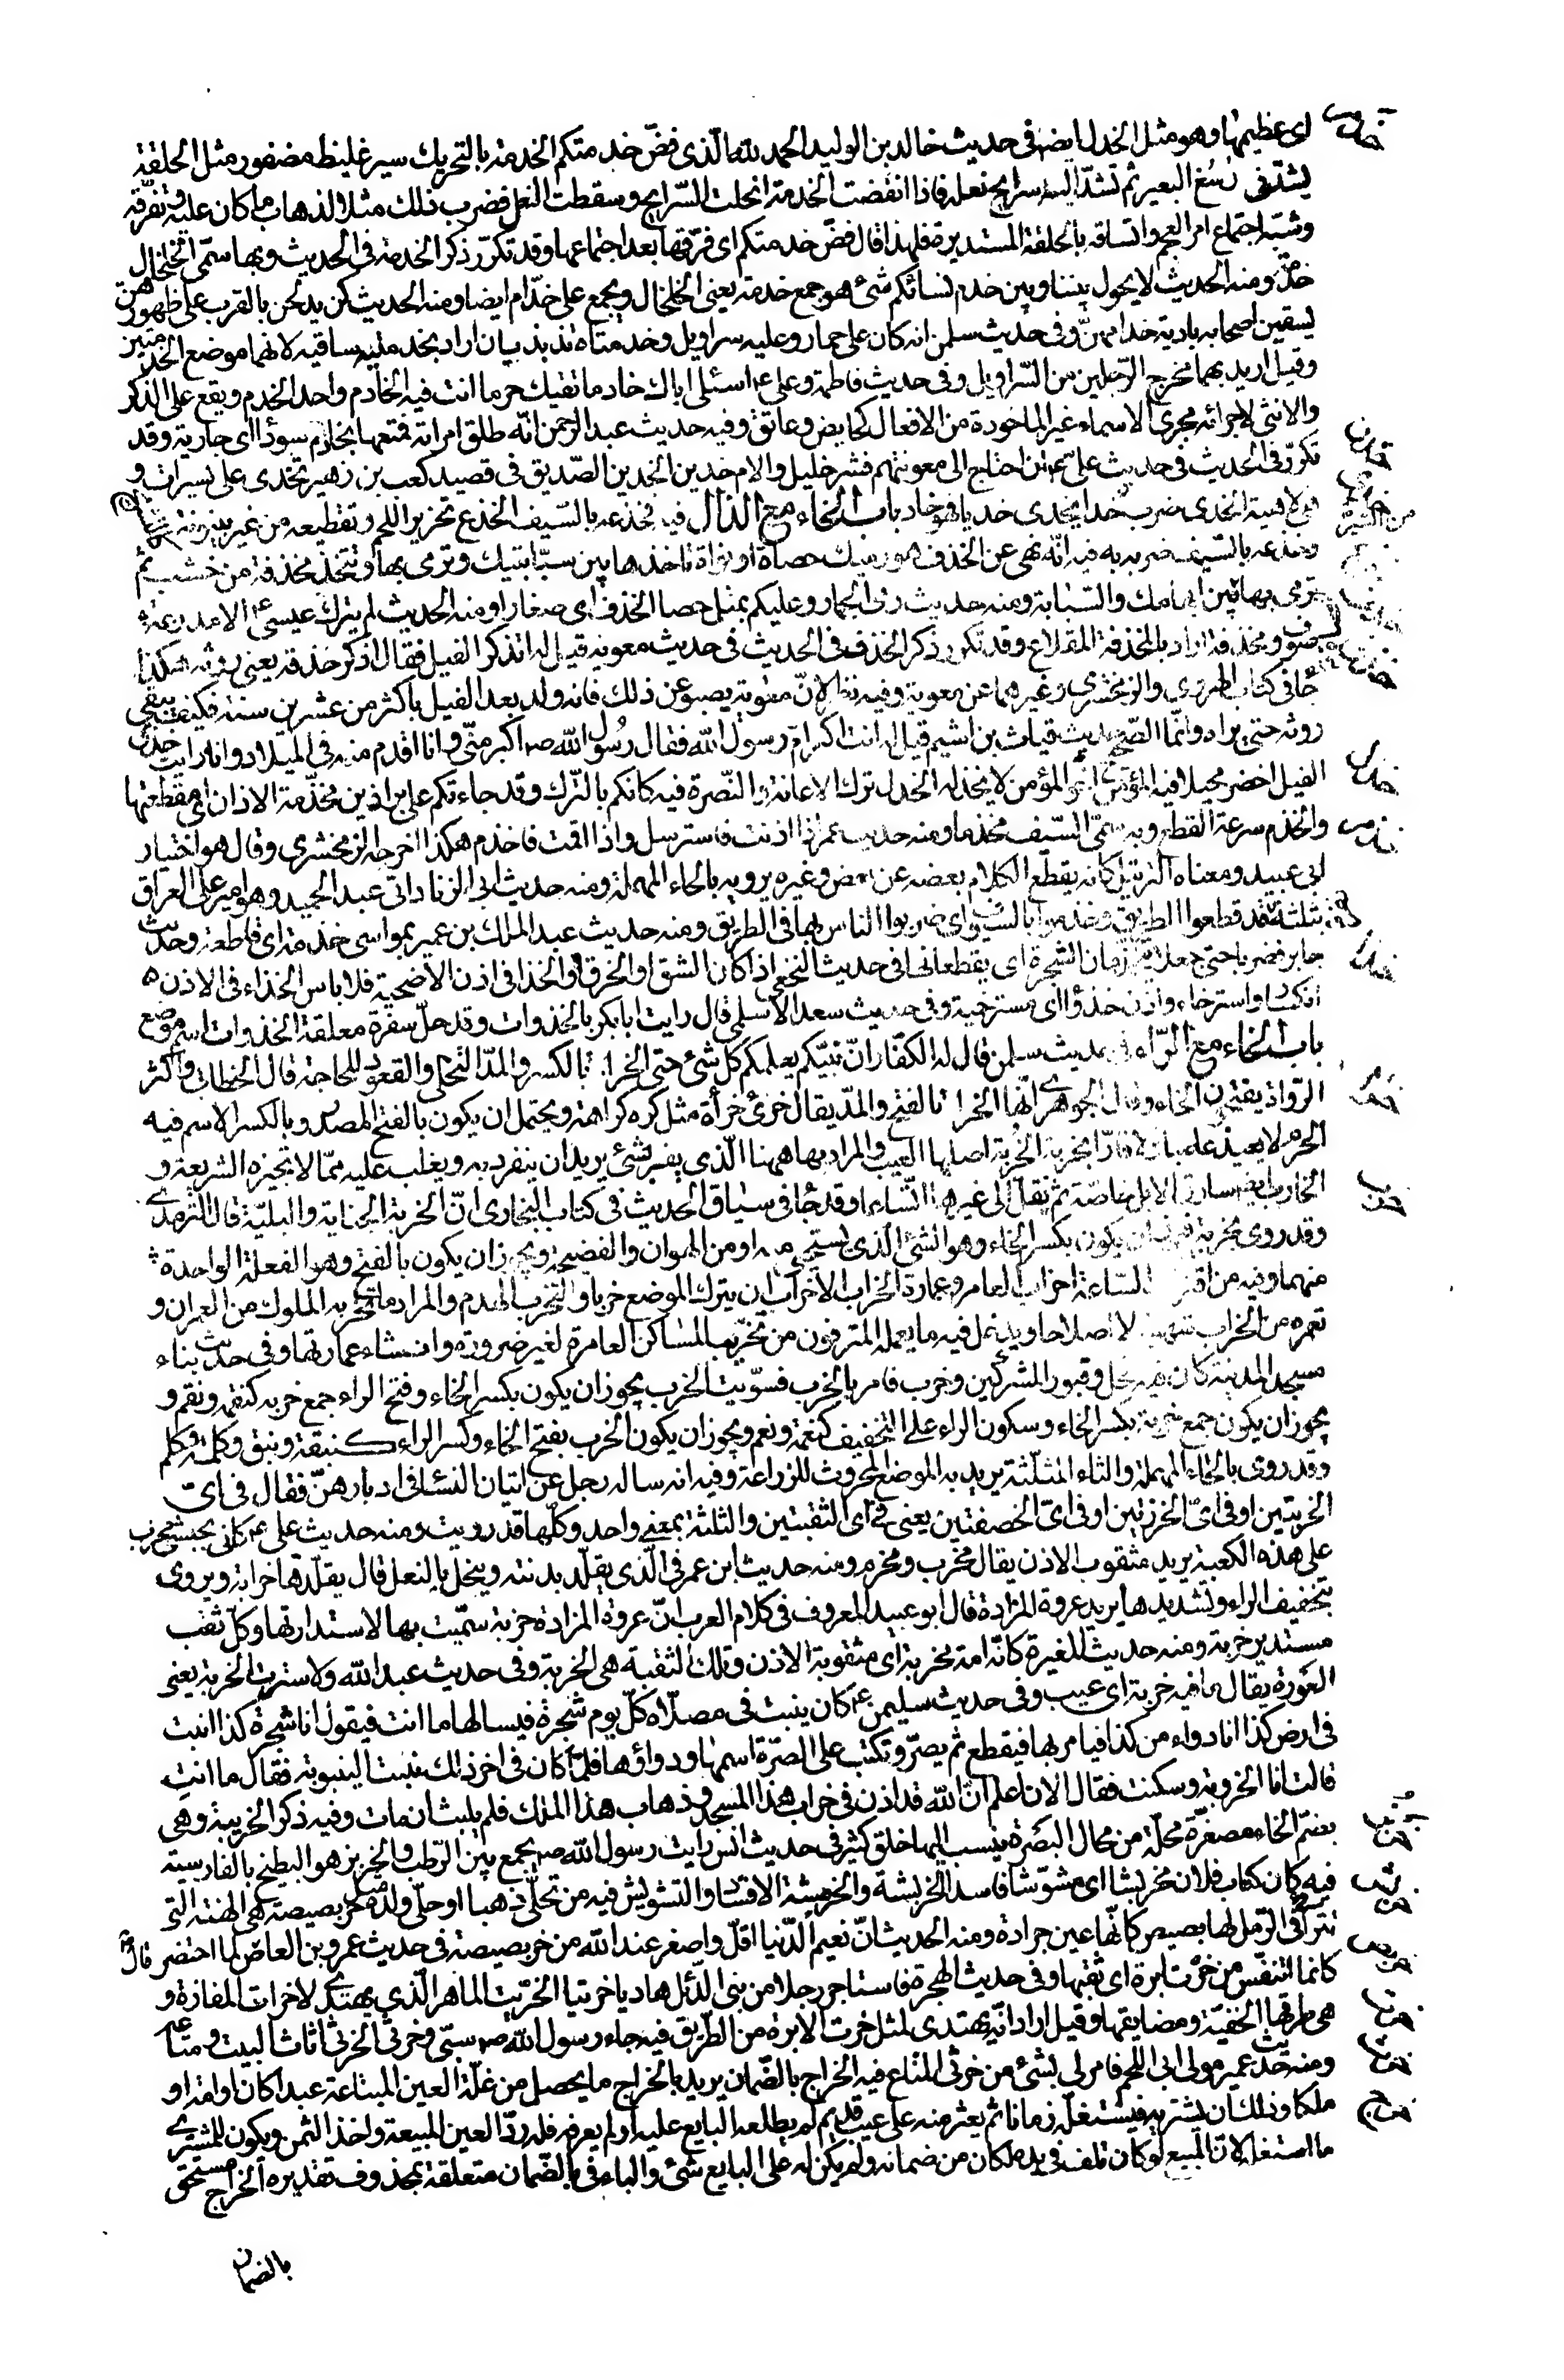 اى عظيمها وهو مثل الخدل ايضا فى حديث خالد بن الوليد الحمد لله الّذى فضّ خدمتكم الخدمة بالتحريك سير غليظ مضفور مثل الحلقة
يشدّ فى رُسْغ البعير ثم تشدّ اليه سرايح نعله فاذا انفضت الخدمة انحلت السّرايح وسقطت النعل فضرب ذلك مثلا لذهاب ما كان عليه وتفرّقه
وشبّه اجتماع امر العجم واتساقه بالحلقة المستديرة فلهذا قال فضّ خدمتكم اى فرّقها بعد اجتماعها وقد تكرّر ذكر الخدمة فى الحديث وبها سمّى الخلخال
خدمة ومنه الحديث لا يحول بيننا وبين خدم نسائكم شئ هو جمع خدمة يعنى الخلخال ويجمع على خدّام ايضا ومنه الحديث كن يدلحن بالقرب على ظهورهن
يسقين اصحابه بادية خدامهنّ وفى حديث سلمن انه كان على حمار وعليه سراويل وخدمتاه تذبذبان اراد بخدمتيه ساقيه لانهما موضع الخدمتين
وقيل اريد بهما مخرج الرّجلين من السّراويل وفى حديث فاطمة وعلى ع اسئلى اباك خادما تقيك حر ما انت فيه الخادم واحد الخدم ويقع على الذكر
والانثى لاجرائه مجرى الاسماء غير الماخوذة من الافعال كحايض وعاتق وفيه حديث عبد الرّحمن انّه طلق امراته فمتعها بخادم سوداء اى جارية وقد
تكرّر فى الحديث فى حديث على ع ان احتاج الى معونتهم فشر خليل والام خدين الخدين الصّديق فى قصيد كعب بن زهير تخدى على يسرات و
هى لاهية الخدى ضرب خدا يخدى خديا فهو خاد باب الخاء مع الذال فيه فخذعه بالسّيف الخذع تحزيز اللحم وتقطيعه من غير بينونة
وخذعه بالسّيف ضربه به فيه انّه نهى عن الخذف هو رميك حصاة او نواة تاخذها بين سبّابتيك وترمى بها وتتّخذ مخذفة من خشب ثم
ترمى بها بين ابهامك والسّبّابة ومنه حديث رمى الجمار وعليكم بمثل حصا الخذف اى صغارا ومنه الحديث لم يترك عيسى ع الا مدرعة
صوف ومخذفة اراد بالمخذفة المقلاع وقد تكرر ذكر الخذف فى الحديث فى حديث معوية قيل له اتذكر الفيل فقال اذكر خذقه يعنى روثه هكذا
جا فى كتاب الهروى والزمخشرى وغيرهما عن معوية وفيه نظر لانّ معوية يصبو عن ذلك فانه ولد بعد الفيل باكثر من عشرين سنة فكيف يبقى
روثه حتى يراه وانّما الصّحيح حديث قباث بن اشيم قيل له انت اكبر ام رسول الله فقال رسُول الله ص اكبر منّى وانا اقدم منه فى الميلاد وانا رايت خذق
الفيل اخضر محيلا فيه المؤمن اخو المؤمن لا يخذله الخذل ترك الاعانة والنّصرة فيه كانكم بالتّرك وقد جاءتكم على براذين مخذّمة الاذان اى مقطعتها
والخذم سرعة القطع وبه سمّى السّيف مخذما ومنه حديث عمر اذا اذنت فاسترسل واذا اقمت فاخذم هكذا اخرجه الزمخشرى وقال هو اختيار
ابى عبيد ومعناه الترتيل كانه يقطع الكلام بعضه عن بعض وغيره يرويه بالحاء المهملة ومنه حديث ابى الزناد اتى عبد الحميد وهو امير على العراق
بثلثة قد قطعوا الطريق وخذموا بالسّيوف اى ضربوا الناس بها فى الطريق ومنه حديث عبد الملك بن عمير بمواسى خذمة اى قاطعة وحديث
جابر فضربا حتى جعلا يتخذمان الشجرة اى يقطعانها فى حديث النخعى اذا كان الشق او الخرق او الخذا فى اذن الاضحية فلا باس الخذاء فى الاذن
انكسار واسترخاء واذن خذواء اى مسترخية وفى حديث سعد الاسلمى قال رايت ابا بكر بالخذوات وقد حلّ سفرة معلقة الخذوات اسم موضع
باب الخاء مع الرّاء فى حديث سلمن قال له الكفّار انّ نبيّكم يعلمكم كل شئ حتى الخراءة بالكسر والمدّ التخلى والقعود للحاجة قال الخطابى واكثر
الرّواة يفتحون الخاء وقال الجوهرى انّها الخراءة بالفتح والمدّ يقال خرئ خرأة مثل كره كراهة ويحتمل ان يكون بالفتح المصدر وبالكسر الاسم فيه
الحرم لا يعيذ عاصيا ولا فارّا بخربة الخُربة اصلها العيب والمراد بها ههنا الّذى يفر بشئ يريد ان ينفرد به ويغلب عليه ممّا لا تجيزه الشريعة و
الخارب ايضا سارق الابل خاصّة ثم نقل الى غيرها اتّساعا وقد جا فى سياق الحديث فى كتاب البخارى انّ الخربة الجناية والبليّة قال الترمذى
وقد روى بخزية فيجوز ان يكون بكسر الخاء وهو الشئ الّذى يستحى منه او من الهوان والفضيحة ويجوز ان يكون بالفتح وهو الفعلة الواحدة
منهما وفيه من اقتراب السّاعة اخراب العامر وعمارة الخراب الاخراب ان يترك الموضع خربا والتخريب الهدم والمراد ما تخربه الملوك من العمران و
تعمره من الخراب شهوة لا اصلاحا ويدخل فيه ما يعمله المترفون من تخريب المساكن العامرة لغير ضرورة وانشاء عمارتها وفى حديث بناء
مسجد المدينة كان فيه نخل وقبور المشركين وخرب فامر بالخرب فسوّيت الخرب يجوز ان يكون بكسر الخاء وفتح الراء جمع خربه كنقمة ونقم و
يجوز ان يكون جمع خربة بكسر الخاء وسكون الراء على التخفيف كنعمة ونعم ويجوز ان يكون الخرب بفتح الخاء وكسر الراء كنبقة ونبق وكلمة وكلم
وقد روى بالحاء المهملة والثاء المثلّثة يريد به الموضع المحروث للزراعة وفيه انه ساله رجل عن اتيان النسا فى ادبارهنّ فقال فى اىّ
الخربتين او فى اىّ الخرزتين او فى اىّ الخصفتين يعنى فى اى الثقبتين والثلثة بمعنى واحد وكلّها قد رويت ومنه حديث على ع كانّى بحبشى مخرب
على هذه الكعبة يريد مثقوب الاذن يقال مخرب ومخرم ومنه حديث ابن عمر فى الّذى يقلّد بدنته ويبخل بالنعل قال يقلّدها خرابة ويروى
بتخفيف الراء وتشديدها يريد عروة المزادة قال ابو عبيد المعروف فى كلام العرب انّ عروة المزادة خربة سمّيت بها لاستدارتها وكلّ ثقب
مستدير خربة ومنه حديث المغيرة كانّه امة مخربة اى مثقوبة الاذن وتلك الثقبة هى الخربة وفى حديث عبد الله ولا سترت الخربة يعنى
العَورة يقال ما فيه خربة اى عيب وفى حديث سليمن ع كان ينبت فى مصلّاه كلّ يوم شجرة فيسالها ما انت فيقول انا شجرة كذا انبت
فى ارض كذا انا دواء من كذا فيامر بها فيقطع ثم يصرّ وتكتب على الصرّة اسمها ودواؤها فلمّا كان فى اخر ذلك نبتت الينبوتة فقال ما انتِ
قالت انا الخروبة وسكنت فقال الان اعلم انّ الله قد اذن فى خراب هذا المسجد وذهاب هذا الملك فلم يلبث ان مات وفيه ذكر الخريبة وهى
بضمّ الخاء مصغّرة محلّة من محال البصَرة ينسب اليها خلق كثير فى حديث انس رايت رسول الله ص يجمع بين الرّطب والخربز هو البطيخ بالفارسية
فيه كان كتاب فلان مخربشا اى مشوّشا فاسدا الخربشة والخرمشة الافساد والتشويش فيه من تحلّى ذهبا او حلّى ولده مثل خربصيصة هى الهنة التى
تتراءى فى الرّمل لها بصيص كانّها عين جرادة ومنه الحديث انّ نعيم الدّنيا اقلّ واصغر عند الله من خربصيصة فى حديث عمرو بن العاص لما احتضر قال
كانما اتنفّس من خرْت ابرة اى ثقبها وفى حديث الهجرة فاستاجر رجلا من بنى الدّئل هاديا خرّيتا الخرّيت الماهر الّذى يهتدى لاخرات المفازة و
هى طرقها الخفيّة ومضايقها وقيل اراد انّه يهتدى لمثل خرت الابرة من الطّريق فيه جاء رسول الله ص سبّى وخرثى الخرثى اثاث البيت ومتاعه
ومنه حديث عمير مولى ابى اللحم فامر لى بشئ من خرثى المتاع فيه الخراج بالضّمان يريد بالخراج ما يحصل من غلّة العين المبتاعة عبدا كان او امة او
ملكا وذلك ان يشتريه فيستغلّه زمانا ثم يعثر منه على عيب قديم لم يطلعه البايع عليه او لم يعرفه فله ردّ العين المبيعة واخذ الثمن ويكون للمشترى
ما استغلّه لانّ المبيع لو كان تلف فى يده لكان من ضمانه ولم يكن له على البايع شئ والباء فى بالضّمان متعلقة بمحذوف تقديره الخراج مستحق
بالضمان